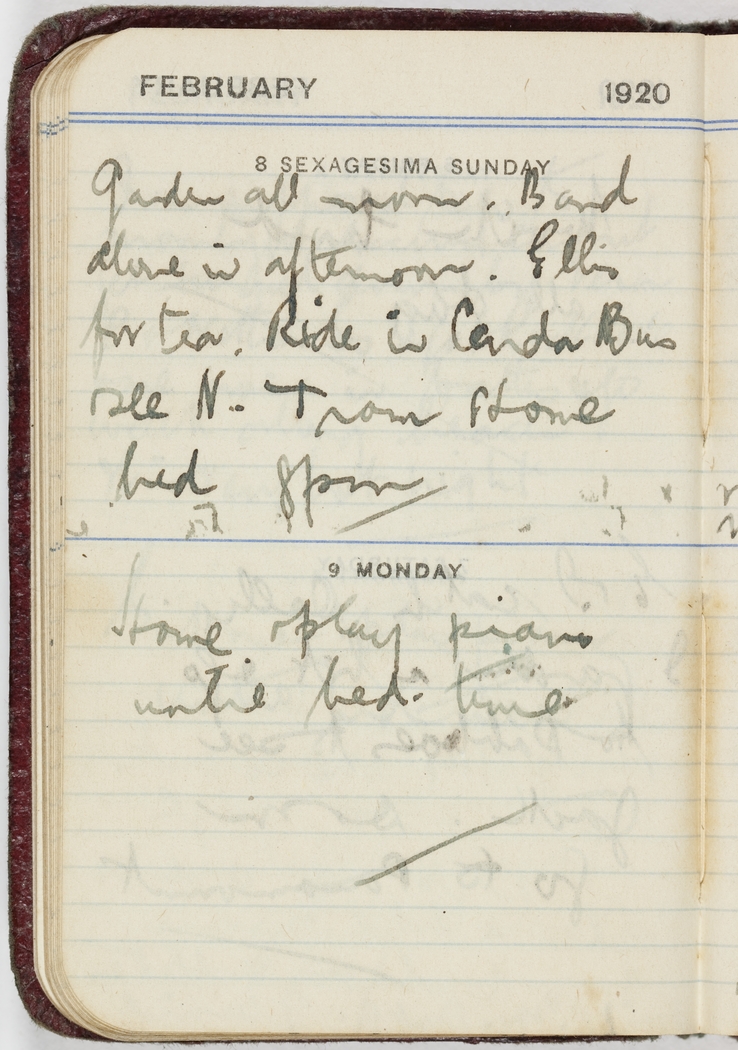 FEBRUARY 1920
8 SEXAGESIMA SUNDAY
Garden all morn. Band
alone in afternoon. Ellis
for tea. Ride in Bus
see N. Tram Home
bed 8pm
9 MONDAY
Home & play piano
until bed-time